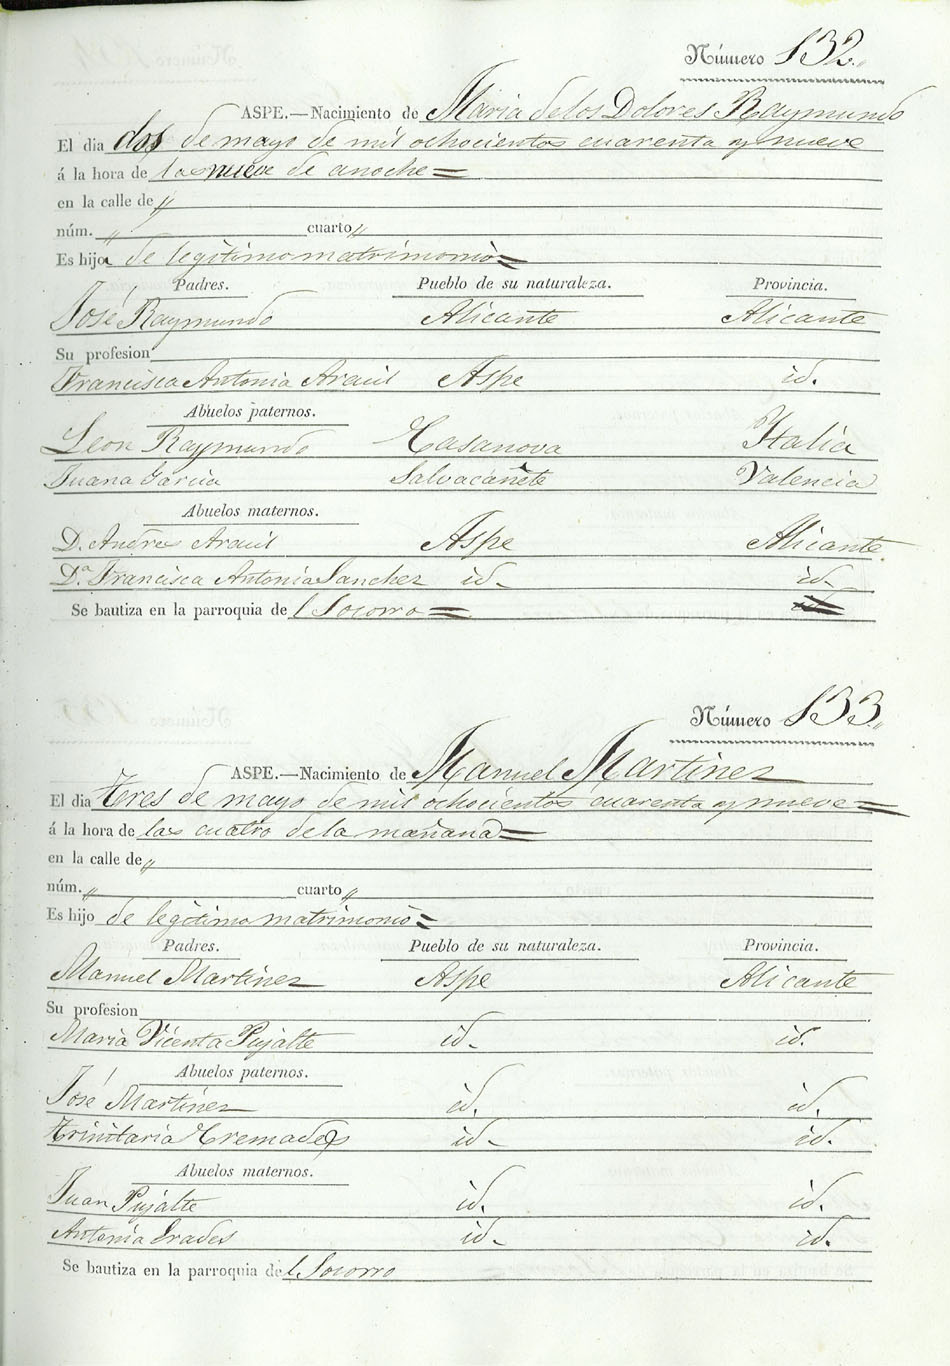 Número 132.
ASPE.—Nacimiento de Maria de los Dolores Raymundo
El dia dos de mayo de mil ochocientos cuarenta y nueve
á la hora de las nueve de anoche =
en la calle de „
núm. „ cuarto „
Es hija de legitimo matrimonio =
Padres. Pueblo de su naturaleza. Provincia.
José Raymundo Alicante Alicante
Su profesion
Francisca Antonia Araul Aspe id.
Abuelos paternos.
Leon Raymundo Casanova Italia
Juana Garcia Salvacañete Valencia
Abuelos maternos.
D. Andres Araul Aspe Alicante.
D.ª Francisca Antonia Sanchez id. id.
Se bautiza en la parroquia del Socorro =
Número 133.
ASPE.—Nacimiento de Manuel Martinez
El dia tres de mayo de mil ochocientos cuarenta y nueve =
á la hora de las cuatro de la mañana =
en la calle de „
núm. „ cuarto „
Es hijo de legitimo matrimonio =
Padres. Pueblo de su naturaleza. Provincia.
Manuel Martinez Aspe Alicante
Su profesion
Maria Vicenta Pujalte id. id.
Abuelos paternos.
José Martinez id. id.
Trinitaria Cremades id. id.
Abuelos maternos.
Juan Pujalte id. id.
Antonia Grades id. id.
Se bautiza en la parroquia del Socorro